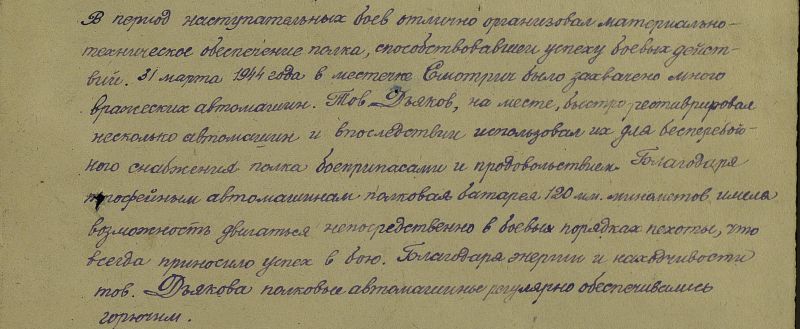 В период наступательных боев отлично организовал материально-
техническое обеспечение полка, способствовавшей успеху боевых дейст-
вий. 31 марта 1944 года в местечке Смотрич было захвачено много
вражеских автомашин. Тов. Дьяков, на месте, быстро реставрировал
несколько автомашин и впоследствии использовал их для бесперебой-
ного снабжения полка боеприпасами и продовольствием. Благодаря
трофейным автомашинам полковая батарея 120 мм. минометов имела
возможность двигаться непосредственно в боевых порядках пехоты, что
всегда приносило успех в бою. Благодаря энергии и находчивости
тов. Дьякова полковые автомашины регулярно обеспечивались
горючим.